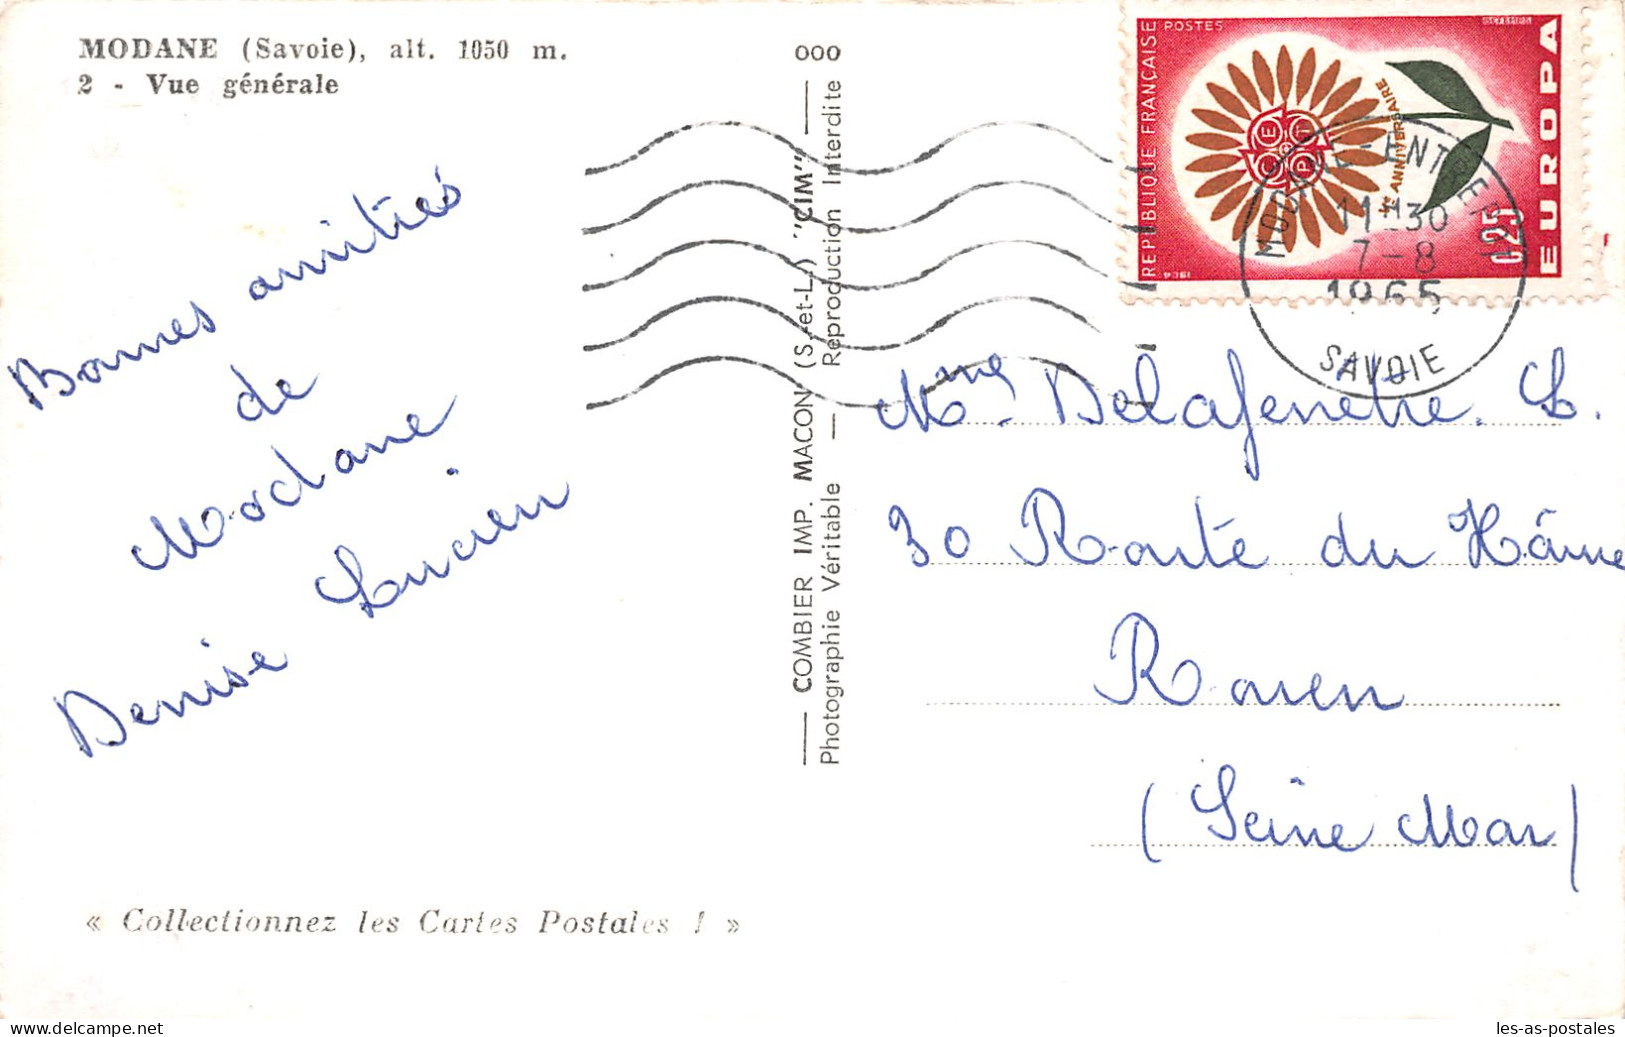 MODANE (Savoie), alt. 1050 m.
2 - Vue générale
Bonnes amitiés
de
Modane
Denise Lucien
« Collectionnez les Cartes Postales ! »
000
COMBIER IMP. MACON (S.-et-L.) "CIM"
Photographie Véritable — Reproduction Interdite
REPUBLIQUE FRANÇAISE
POSTES
EUROPA
0,25
Ve ANNIVERSAIRE
1964
C E P T
MODANE-ENTREPOT
11H30
7-8
1965
SAVOIE
Mme Delafenetre. L.
30 Route du Hâvre
Rouen
(Seine Mar)
les-as-postales
www.delcampe.net